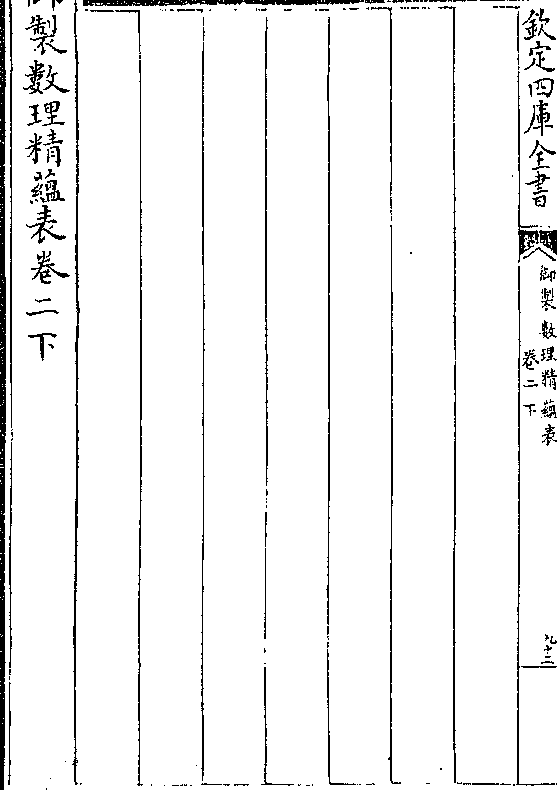 欽定四庫全書
御製數理精藴表
卷二下
九十二
御製數理精藴表卷二下